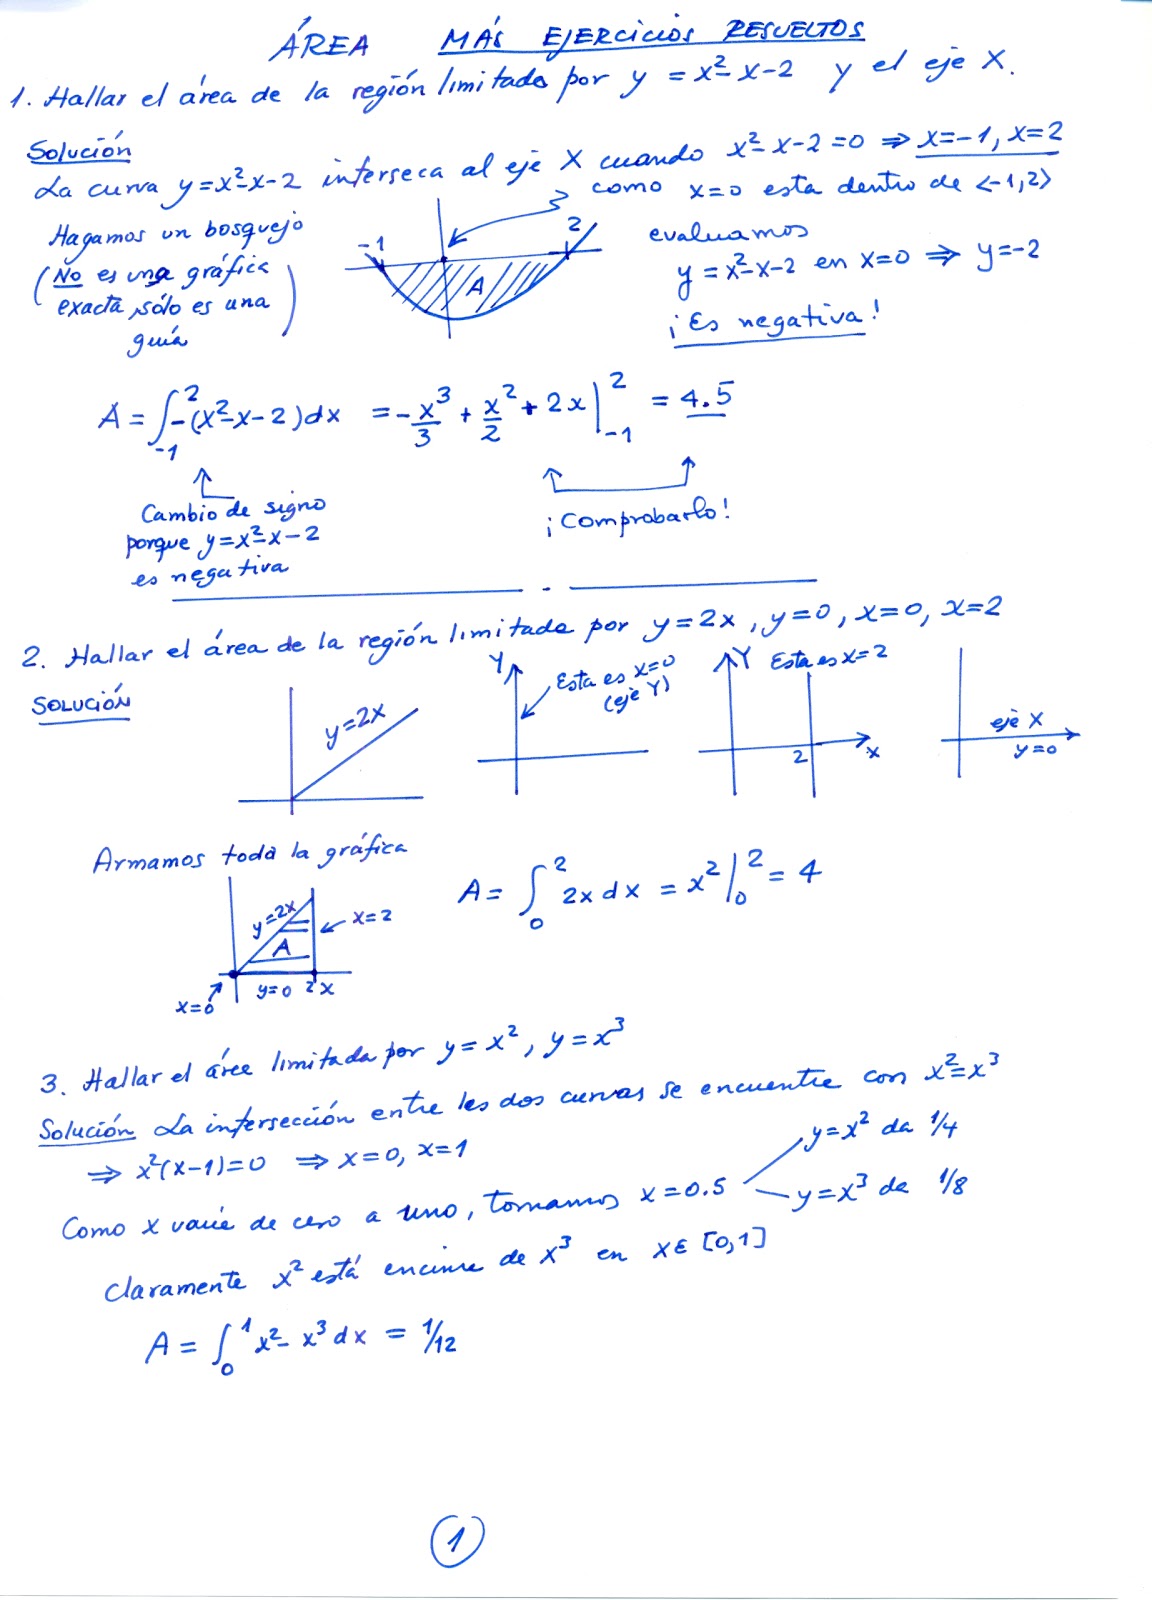 ÁREA MÁS EJERCICIOS RESUELTOS
1. Hallar el área de la región limitada por y = x²-x-2 y el eje X.
Solución
La curva y=x²-x-2 interseca al eje X cuando x²-x-2=0 ⇒ x=-1, x=2
como x=0 esta dentro de <-1,2>
Hagamos un bosquejo
(No es una gráfica
exacta, sólo es una
guía)
-1
2
A
evaluamos
y = x²-x-2 en x=0 ⇒ y=-2
¡Es negativa!
A = ∫₋₁² -(x²-x-2)dx = -x³/3 + x²/2 + 2x |₋₁² = 4.5
Cambio de signo
porque y=x²-x-2
es negativa
¡Comprobarlo!
2. Hallar el área de la región limitada por y=2x, y=0, x=0, x=2
SOLUCIÓN
y=2x
Y
Esta es x=0
(eje Y)
Y Esta es x=2
2
x
eje X
y=0
Armamos toda la gráfica
y=2x
x=2
A
x=0
y=0 2 x
A = ∫₀² 2x dx = x² |₀² = 4
3. Hallar el área limitada por y = x², y = x³
Solución La intersección entre las dos curvas se encuentra con x²=x³
⇒ x²(x-1)=0 ⇒ x=0, x=1
y=x² da 1/4
Como x varía de cero a uno, tomamos x=0.5
y=x³ da 1/8
Claramente x² está encima de x³ en x∈[0,1]
A = ∫₀¹ x²-x³ dx = 1/12
1